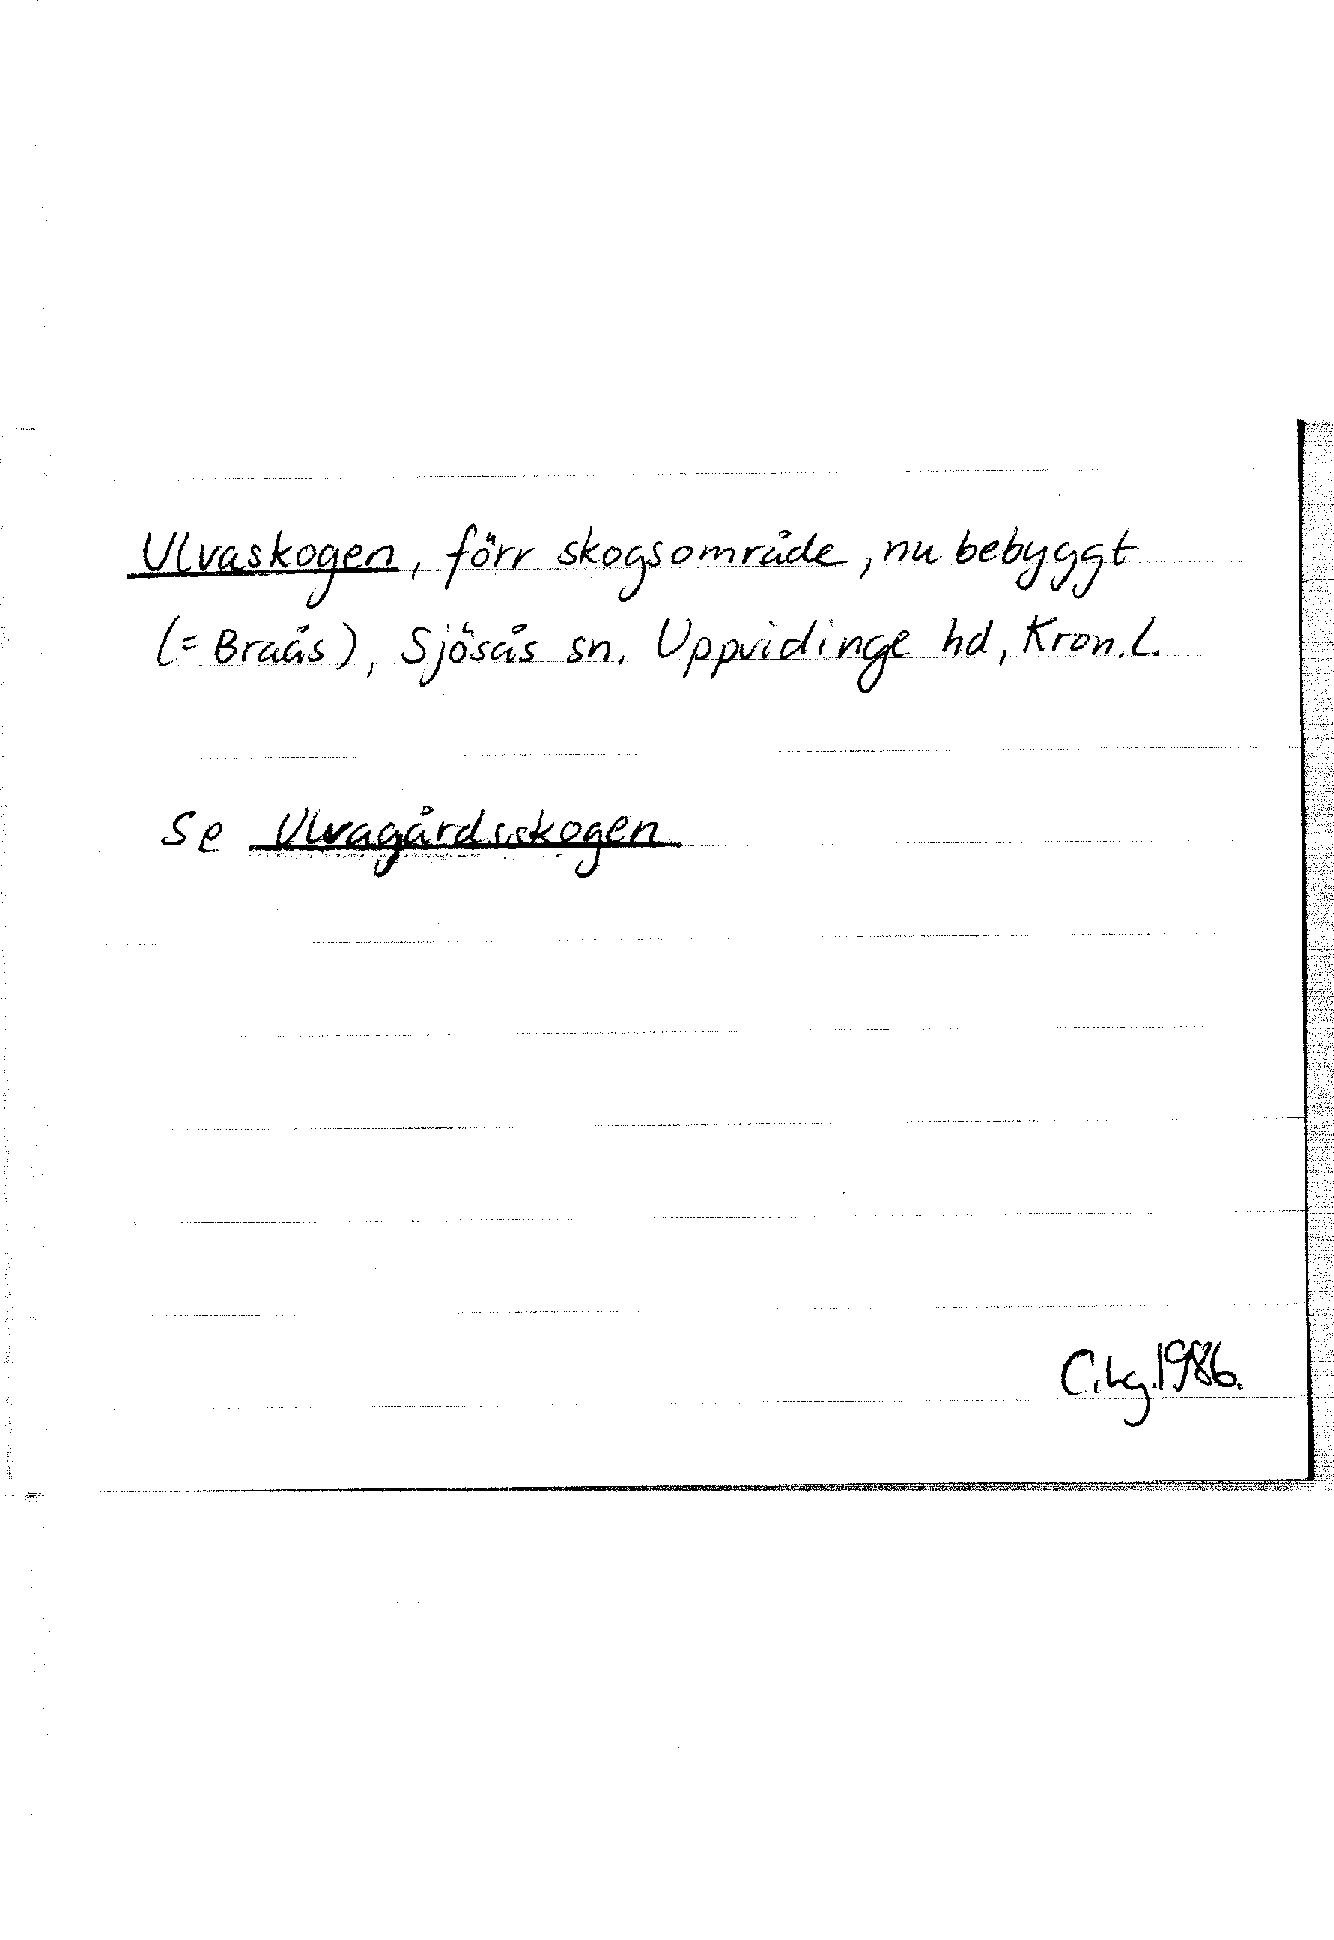 Ulvaskogen, förr skogsområde, nu bebyggt
(= Braås), Sjösås sn. Uppvidinge hd, Kron. L.
Se Ulvagårdsskogen
C.Lg.1986.